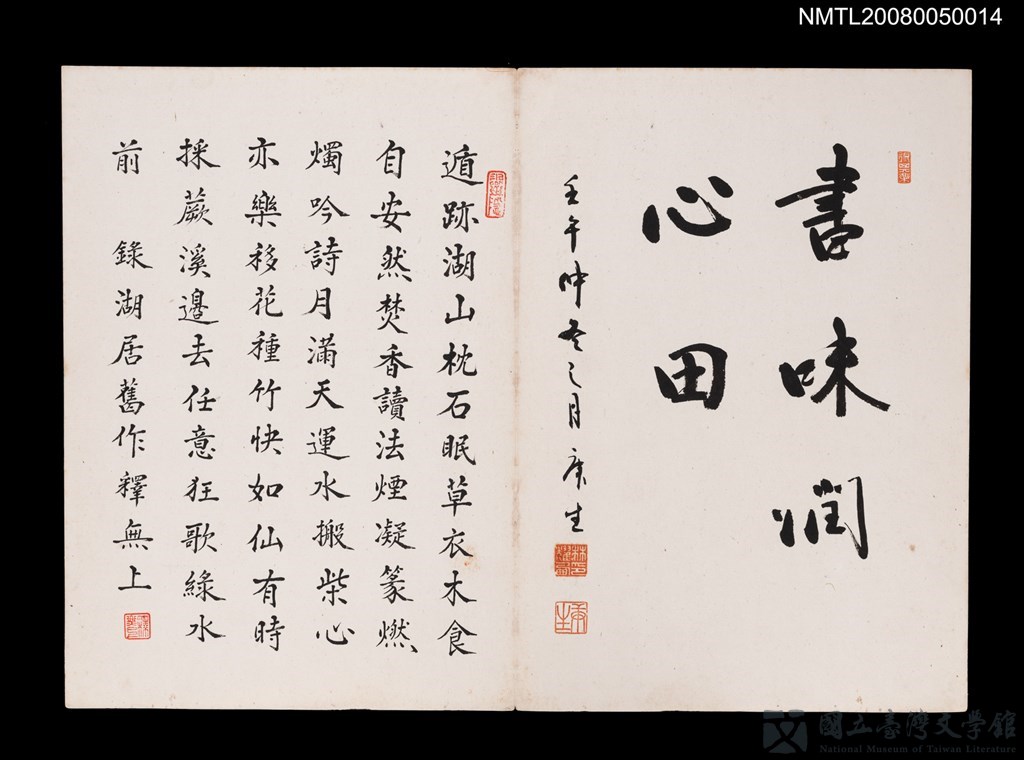 NMTL20080050014
書味潤
心田
壬午仲冬之月 康生
遁跡湖山枕石眠草衣木食
自安然焚香讀法煙凝篆燃
燭吟詩月滿天運水搬柴心
亦樂移花種竹快如仙有時
採蕨溪邊去任意狂歌綠水
前 錄湖居舊作釋無上
國立臺灣文學館
National Museum of Taiwan Literature